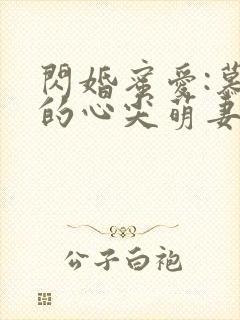 閃婚蜜愛:慕
的心尖萌妻
公子白袍